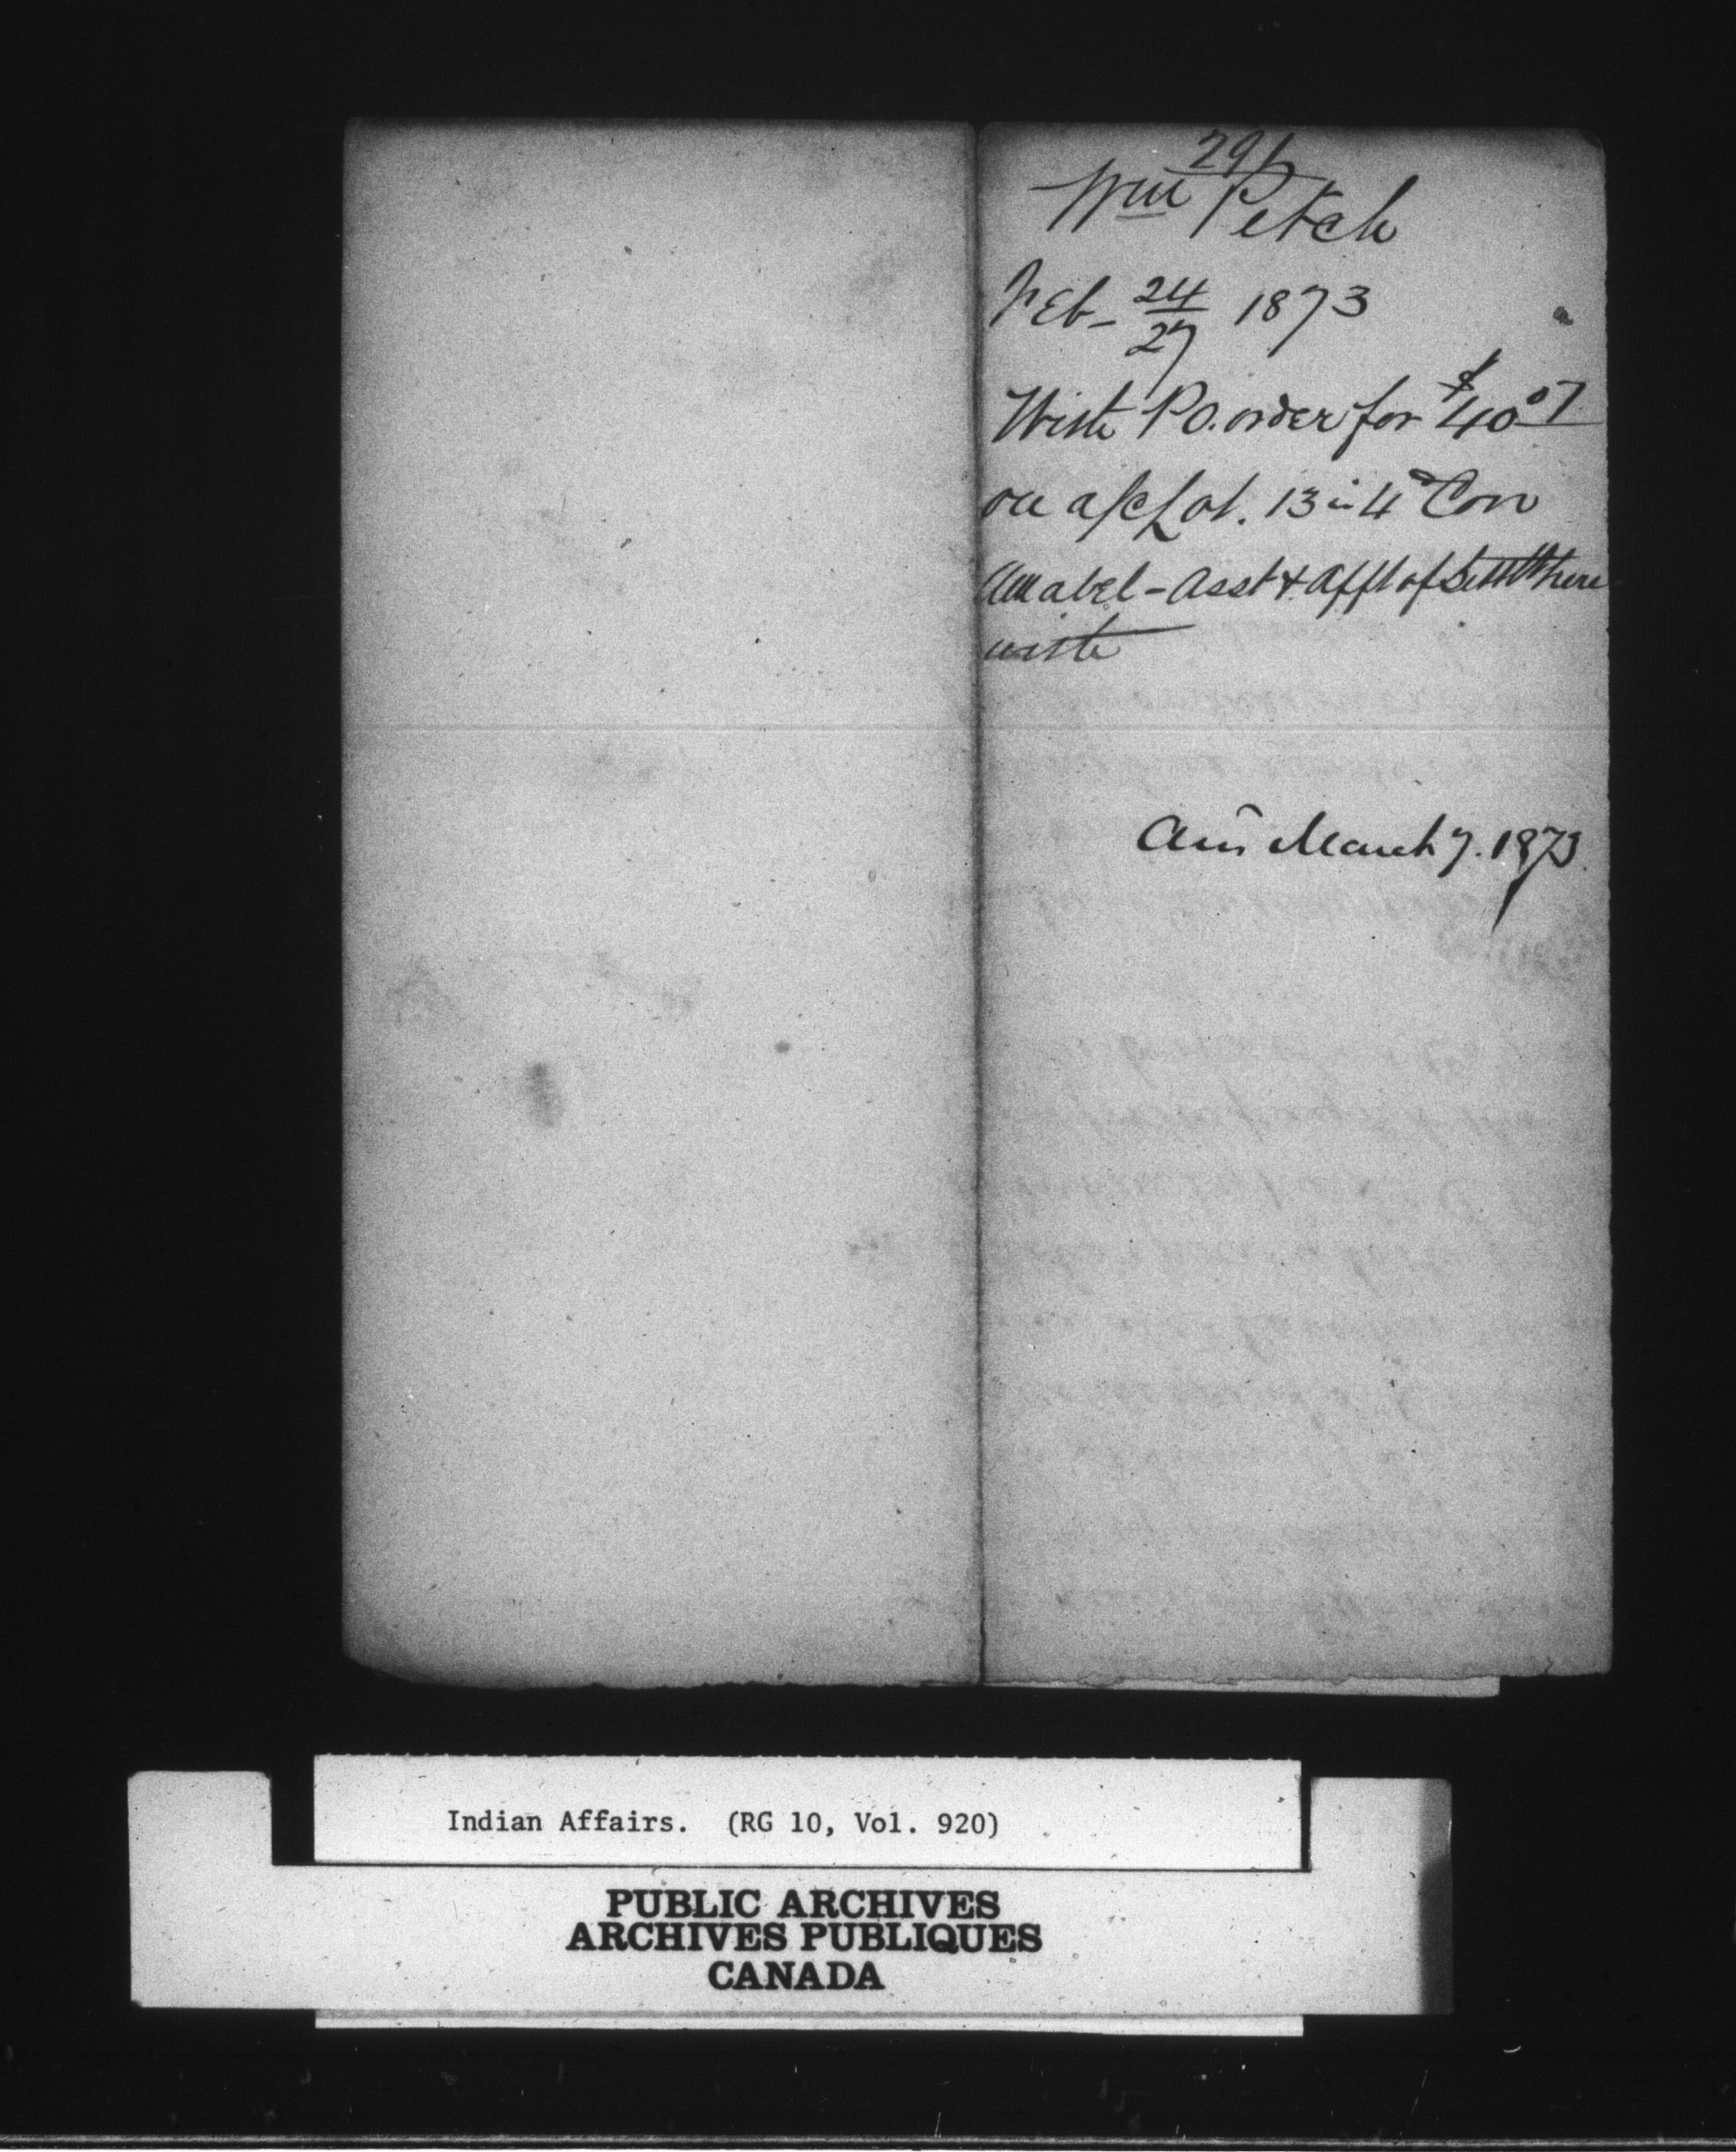 291
Wm Petch
Feb- 24/27 1873
With P.O. order for $40.07
on a/c Lot. 13 in 4th Con
Amabel - Asst & Afft of Settlt here
with
Ans March 7. 1873.
Indian Affairs. (RG 10, Vol. 920)
PUBLIC ARCHIVES
ARCHIVES PUBLIQUES
CANADA